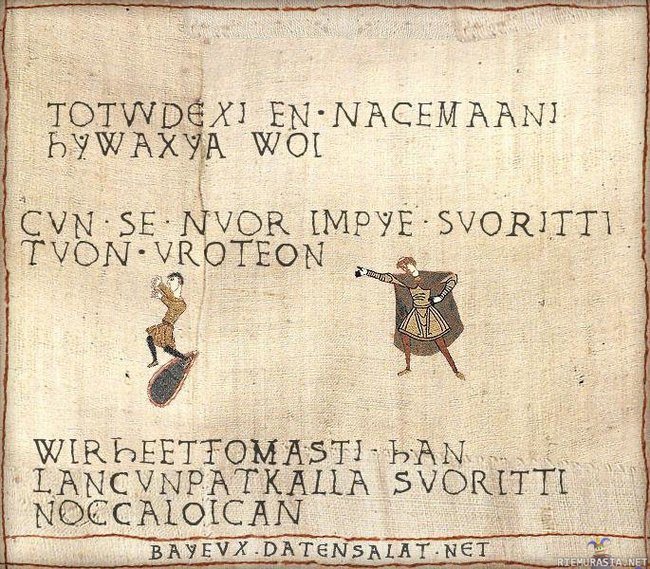 TOTVVDEXI EN · NACEMAANI
hyWAXyA WOI
CVN · SE · NVOR IMPyE · SVORITTI
TVON · VROTEON
WIRhEETTOMASTI · hAN
LANCVNPATKALLA SVORITTI
NOCCALOICAN
BAyEVX.DATENSALAT.NET
RIEMURASTA.NET